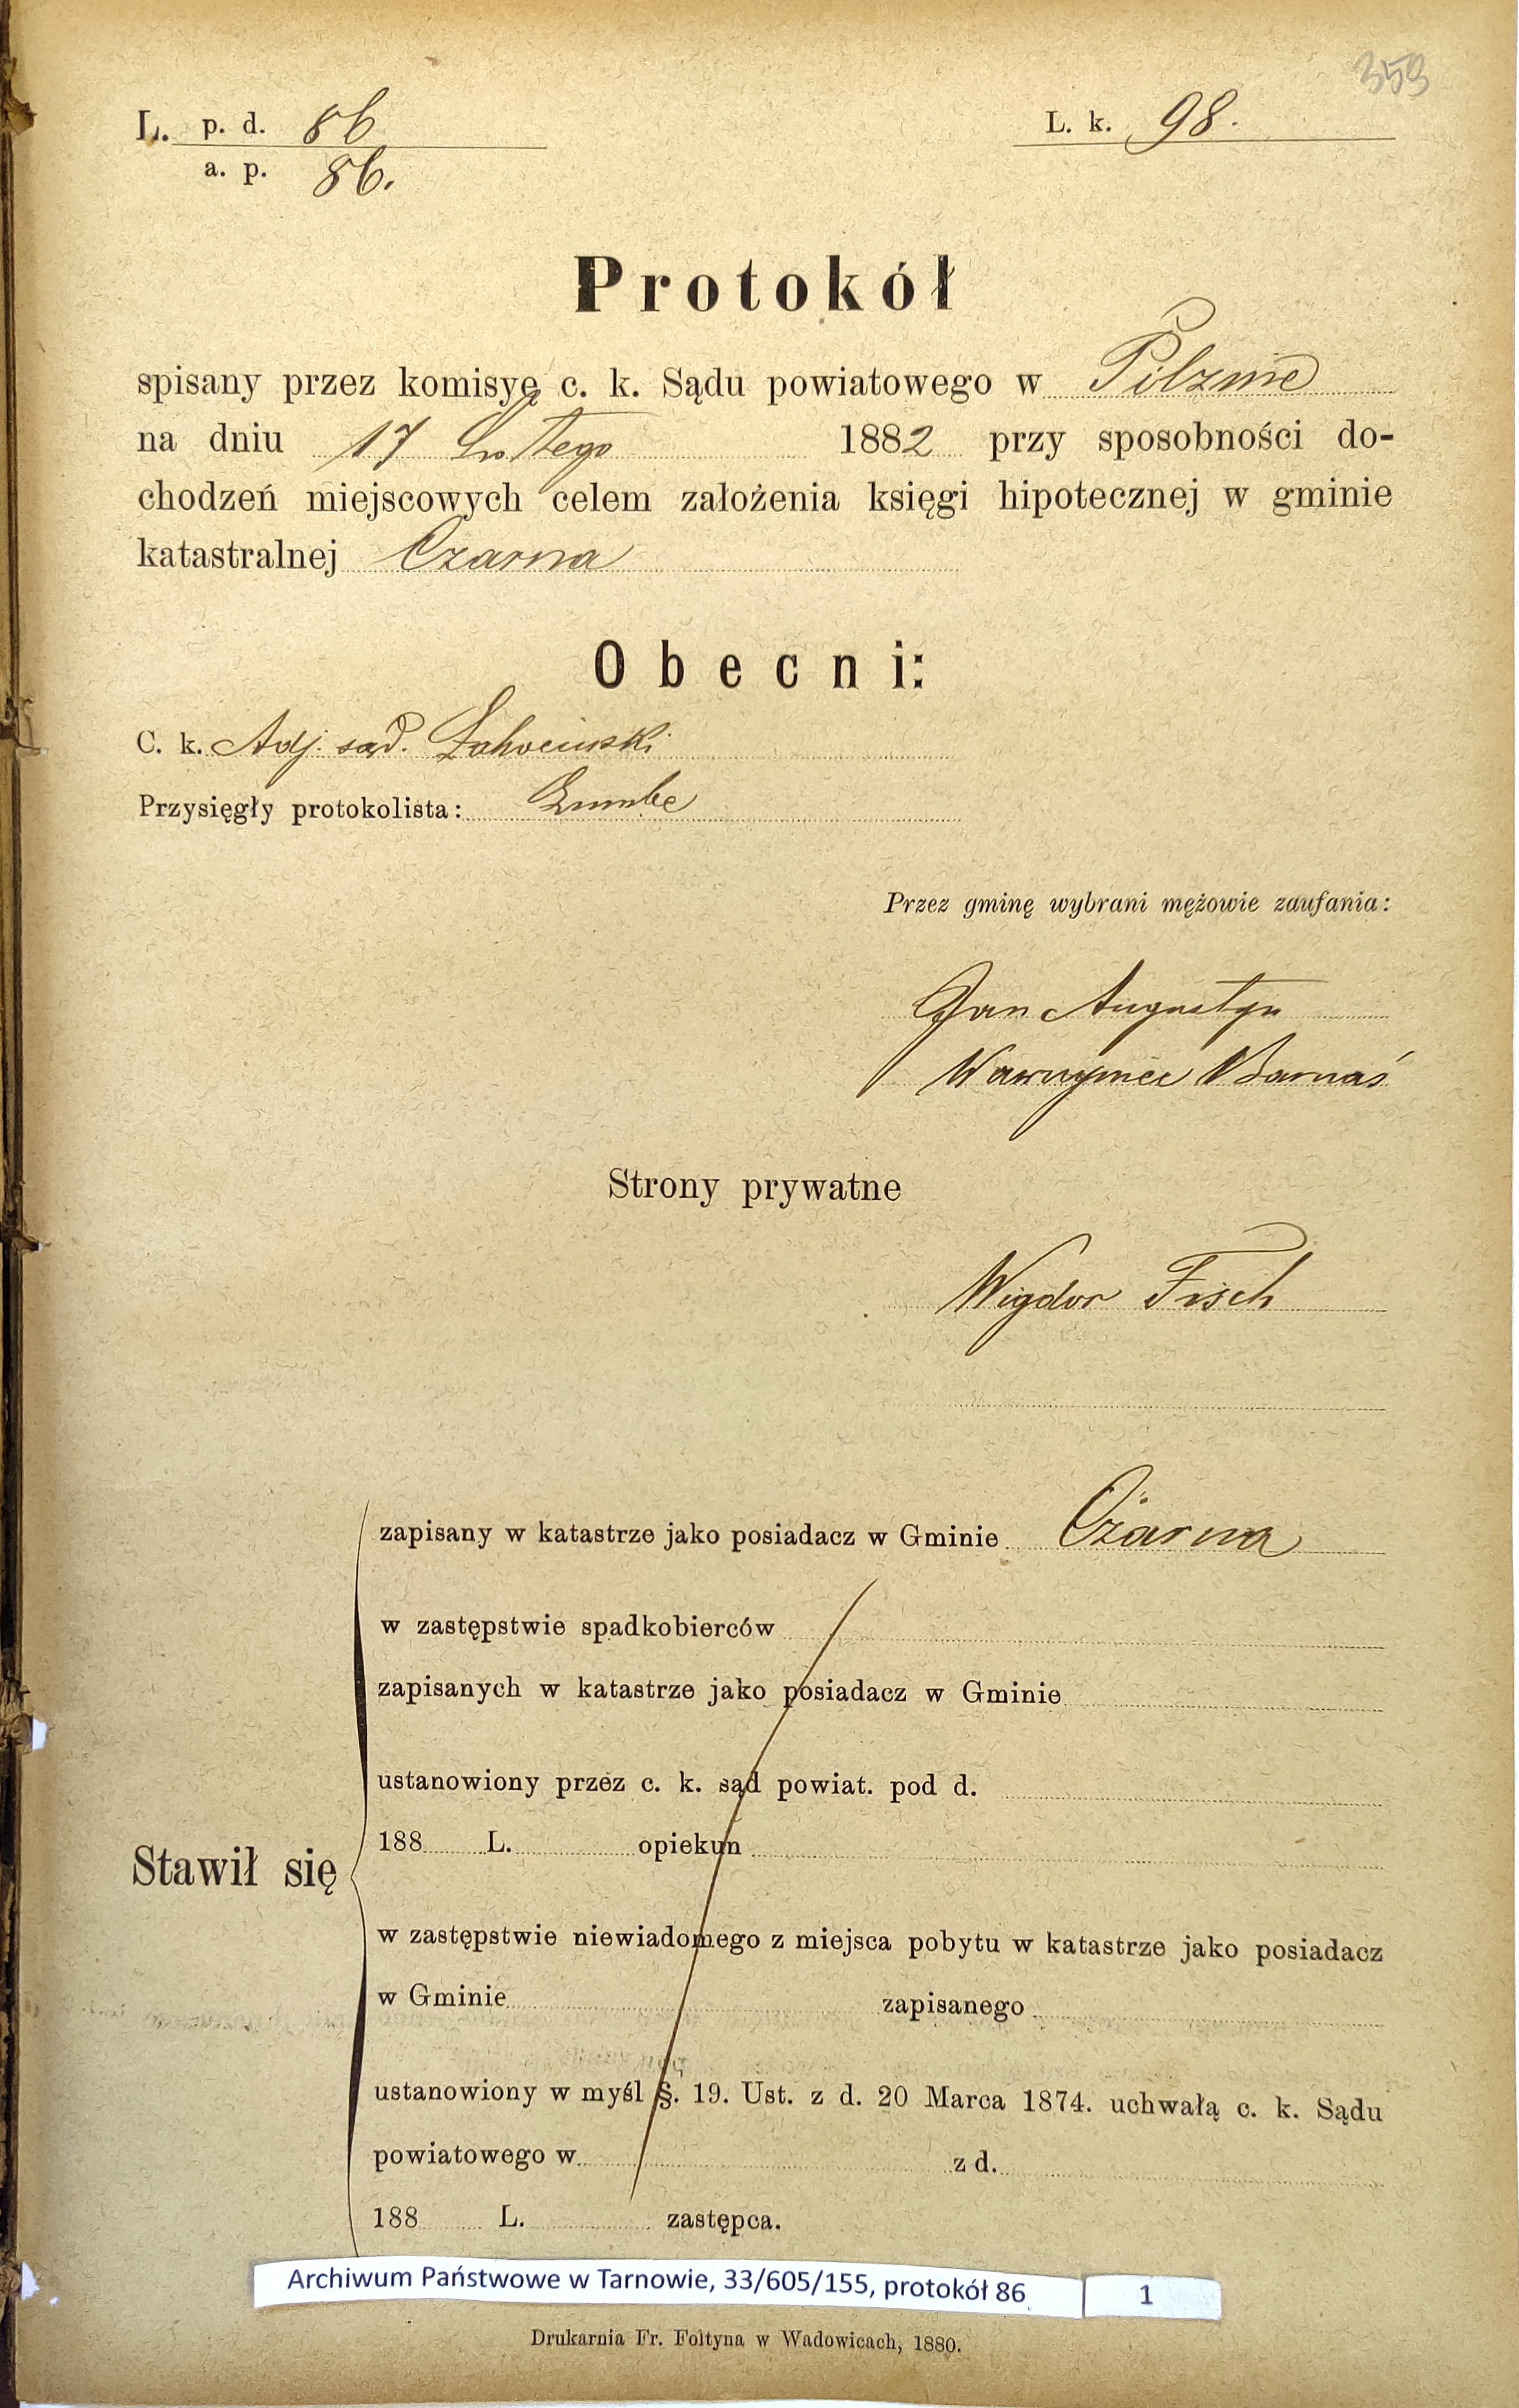 359
L. p. d. 86
L. k. 98.
a. p. 86.
Protokół
spisany przez komisyę c. k. Sądu powiatowego w Pilznie
na dniu 17 Lutego 1882 przy sposobności do-
chodzeń miejscowych celem założenia księgi hipotecznej w gminie
katastralnej Czarna
Obecni:
C. k. Adj. sąd.
Przysięgły protokolista:
Przez gminę wybrani mężowie zaufania:
Jan Augustyn
Wawrzyniec Barnaś
Strony prywatne
Wigdor Fisch
zapisany w katastrze jako posiadacz w Gminie Czarna
w zastępstwie spadkobierców
zapisanych w katastrze jako posiadacz w Gminie
ustanowiony przez c. k. sąd powiat. pod d.
188 L. opiekun
Stawił się
w zastępstwie niewiadomego z miejsca pobytu w katastrze jako posiadacz
w Gminie zapisanego
ustanowiony w myśl §. 19. Ust. z d. 20 Marca 1874. uchwałą c. k. Sądu
powiatowego w z d.
188 L. zastępca.
Archiwum Państwowe w Tarnowie, 33/605/155, protokół 86 1
Drukarnia Fr. Foltyna w Wadowicach, 1880.